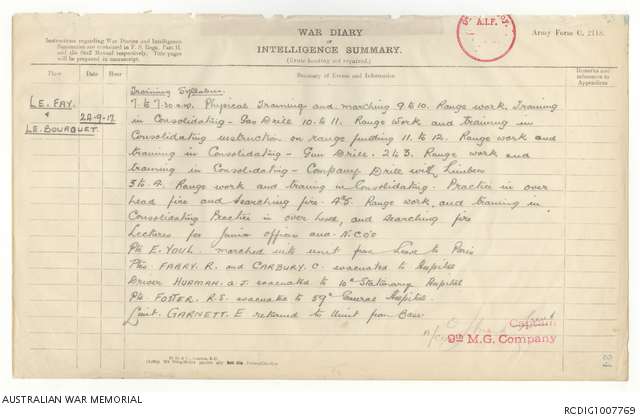 WAR DIARY
or
INTELLIGENCE SUMMARY.
(Erase heading not required.)
Instructions regarding War Diaries and Intelligence
Summaries are contained in F. S. Regs., Part II.
and the Staff Manual respectively. Title pages
will be prepared in manuscript.
A.I.F.
Army Form C. 2118.
Place
Date
Hour
Summary of Events and Information
Remarks and
references to
Appendices
LE. FAY.
&
LE. BOURQUET.
28-9-17
Training Syllabus.
7. to 7-30 a.m. Physical Training and marching 9 to 10. Range work. Training
in Consolidating - Gas Drill 10. to 11. Range work and Training in
Consolidating instruction on range finding 11. to 12. Range work and
training in Consolidating - Gun Drill. 2 to 3. Range work and
training in Consolidating - Company Drill with Limbers
3 to 4. Range work and training in Consolidating. Practice in over
head fire and searching fire. 4 to 5. Range work, and training in
Consolidating Practice in over head, and searching fire
Lectures for Junior Officers and N.C.O's
Pte E. YOUL. marched into unit from Leave to Paris
Ptes. FABRY. R. and CARBURY. C. evacuated to Hospital
Driver HORMAN. A J. evacuated to 10th Stationary Hospital
Pte. FOSTER. R.S. evacuated to 39th General Hospital.
Lieut. GARNETT. E returned to Unit from Base
Captain
9th M.G. Company
24
AUSTRALIAN WAR MEMORIAL
RCDIG1007769